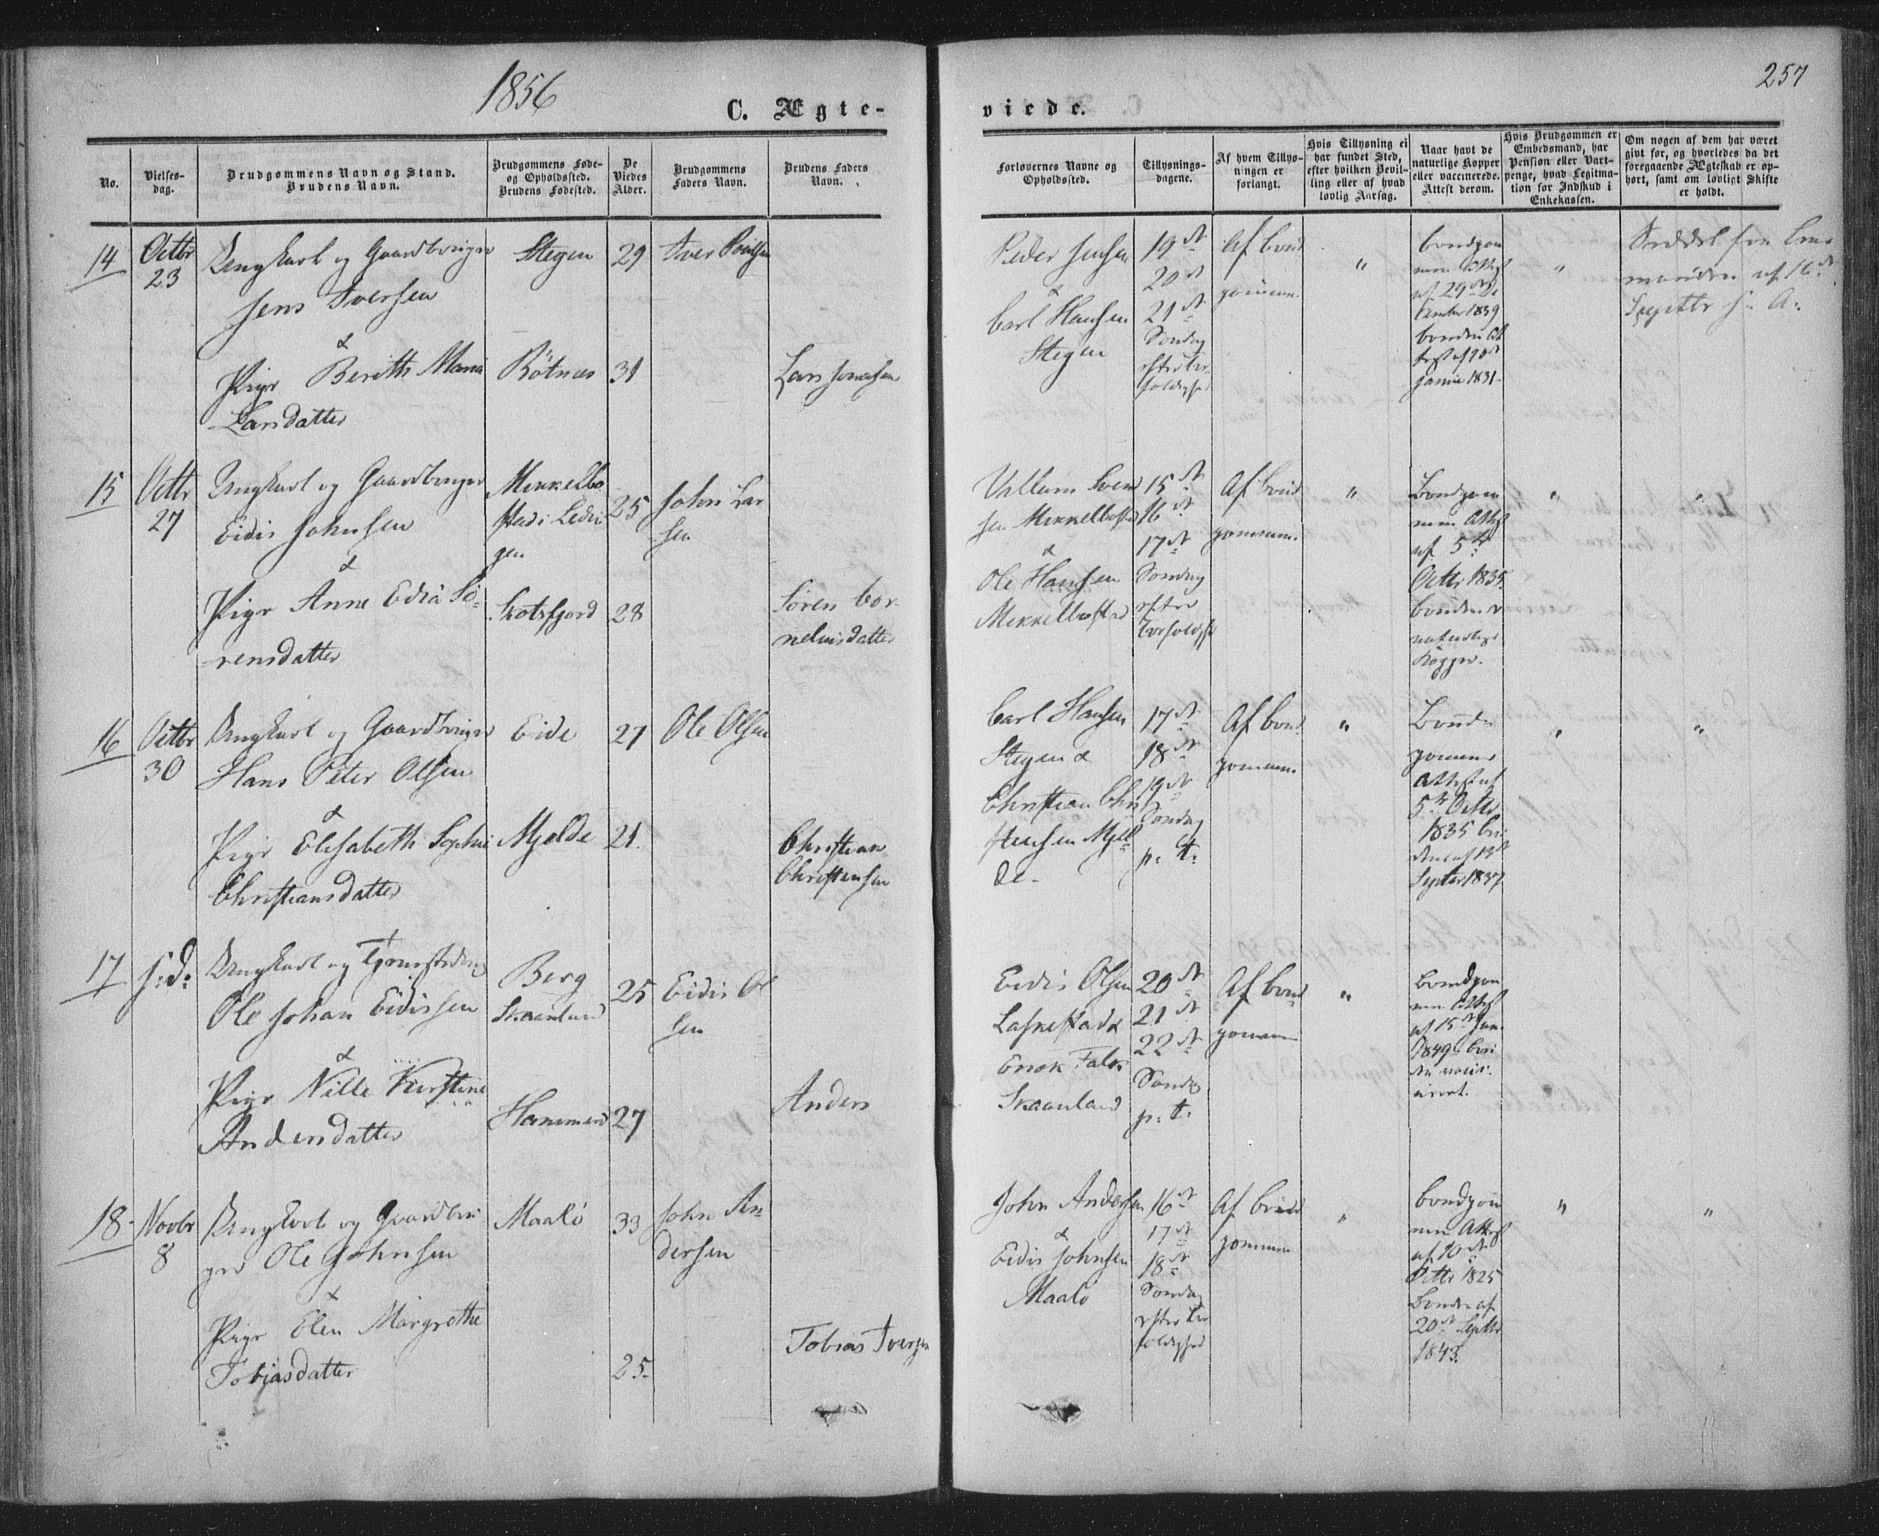 1856
257
C. Ægte-
viede.
No.
Vielses-
dag.
Brudgommens Navn og Stand.
Brudens Navn.
Brudgommens Føde-
og Opholdssted.
Brudens Fødested.
De
Viedes
Alder.
Brudgommens
Faders Navn.
Brudens Faders
Navn.
Forlovernes Navne og
Opholdssted.
Tillysnings-
dagene.
Af hvem Tillys-
ningen er
forlangt.
Hvis Tillysning ei
har fundet Sted,
efter hvilken Bevil-
ling eller af hvad
lovlig Aarsag.
Naar havt de
naturlige Kopper
eller vaccinerede.
Attest derom.
Hvis Brudgommen er
Embedsmand, har
Pension eller Vart-
penge, hvad Legitima-
tion for Indskud i
Enkekassen.
Om nogen af dem har været
gift før, og hvorledes da det
foregaaende Ægteskab er op-
hørt, samt om lovligt Skifte
er holdt.
14
Octbr
23
Ungkarl og Gaardbruger
Jens Iversen
&
Pige Berith Maria
Larsdatter
Stegen
Bötnæs
29
31
Iver Poulsen
Lars Jonassen
Peder Jensen
&
Carl Hansen
Stegen
19de
20de
21de
Søndag
efter Tre
foldighed
Af Brud
gommen.
"
Brudgom
men Attest
af 29de De
cember 1839
Bruden At
test af 10de
Januar 1831.
"
Seddel fra
af 16de
Septbr s. A.
15
Octbr
27
Ungkarl og Gaardbruger
Eidis Johnsen
&
Pige Anne Edia Sö-
rensdatter
Mikkelbo
stad i Ledin
gen
Skotsfjord
25
28
John Lar
sen
Sören Cor-
neliusdatter
Villum Svend
sen Mikkelbostad
&
Ole Hansen
Mikkelbostad
15de
16de
17de
Søndag
efter
Trefoldighed
Af Brud
gommen.
"
Brudgom
men Attest
af 5te
Octbr 1835.
Bruden
naturlige
Kopper.
"
16
Octbr
30
Ungkarl og Gaardbruger
Hans Peter Olsen
&
Pige Elisabeth Sophie
Christiansdatter
Eide
Mjelde
27
21.
Ole Olsen
Christian
Christensen
Carl Hansen
Stegen &
Christian Chri
stensen Mjel
de.
17de
18de
19de
Søndag
p. t.
Af Brud
gommen.
"
Brud
gommens
Attest af
5te Octbr
1835 Bru
dens af 13de
Septbr 1837
"
"
17
s. d.
Ungkarl og
Ole Johan Eidissen
&
Pige Nille Kirstine
Andersdatter
Berg
Skaanland
Hammer
25
27
Eidis Ol
sen
Anders
Eidis Olsen
Laskestad &
Enok Falk
Skaanland
20de
21de
22de
Søndag
p. t.
Af Brud
gommen
"
Brudgom
men Attest
af 15de Jan.
1849. Bru
den vacci
neret.
18
Novbr
8
Ungkarl og Gaardbru
ger Ole Johnsen
&
Pige Elen Margrethe
Tobjasdatter
Maalö
33
25
John An
dersen
Tobias Iversen
John Andersen
&
Eidis Johnsen
Maalö
16de
17de
18de
Søndag
efter Tre
foldighed
Af Brud
gommen
"
Brudgom
men Attest
af 10de
Octbr 1825
Bruden af
20de Septbr
1843.
"
"